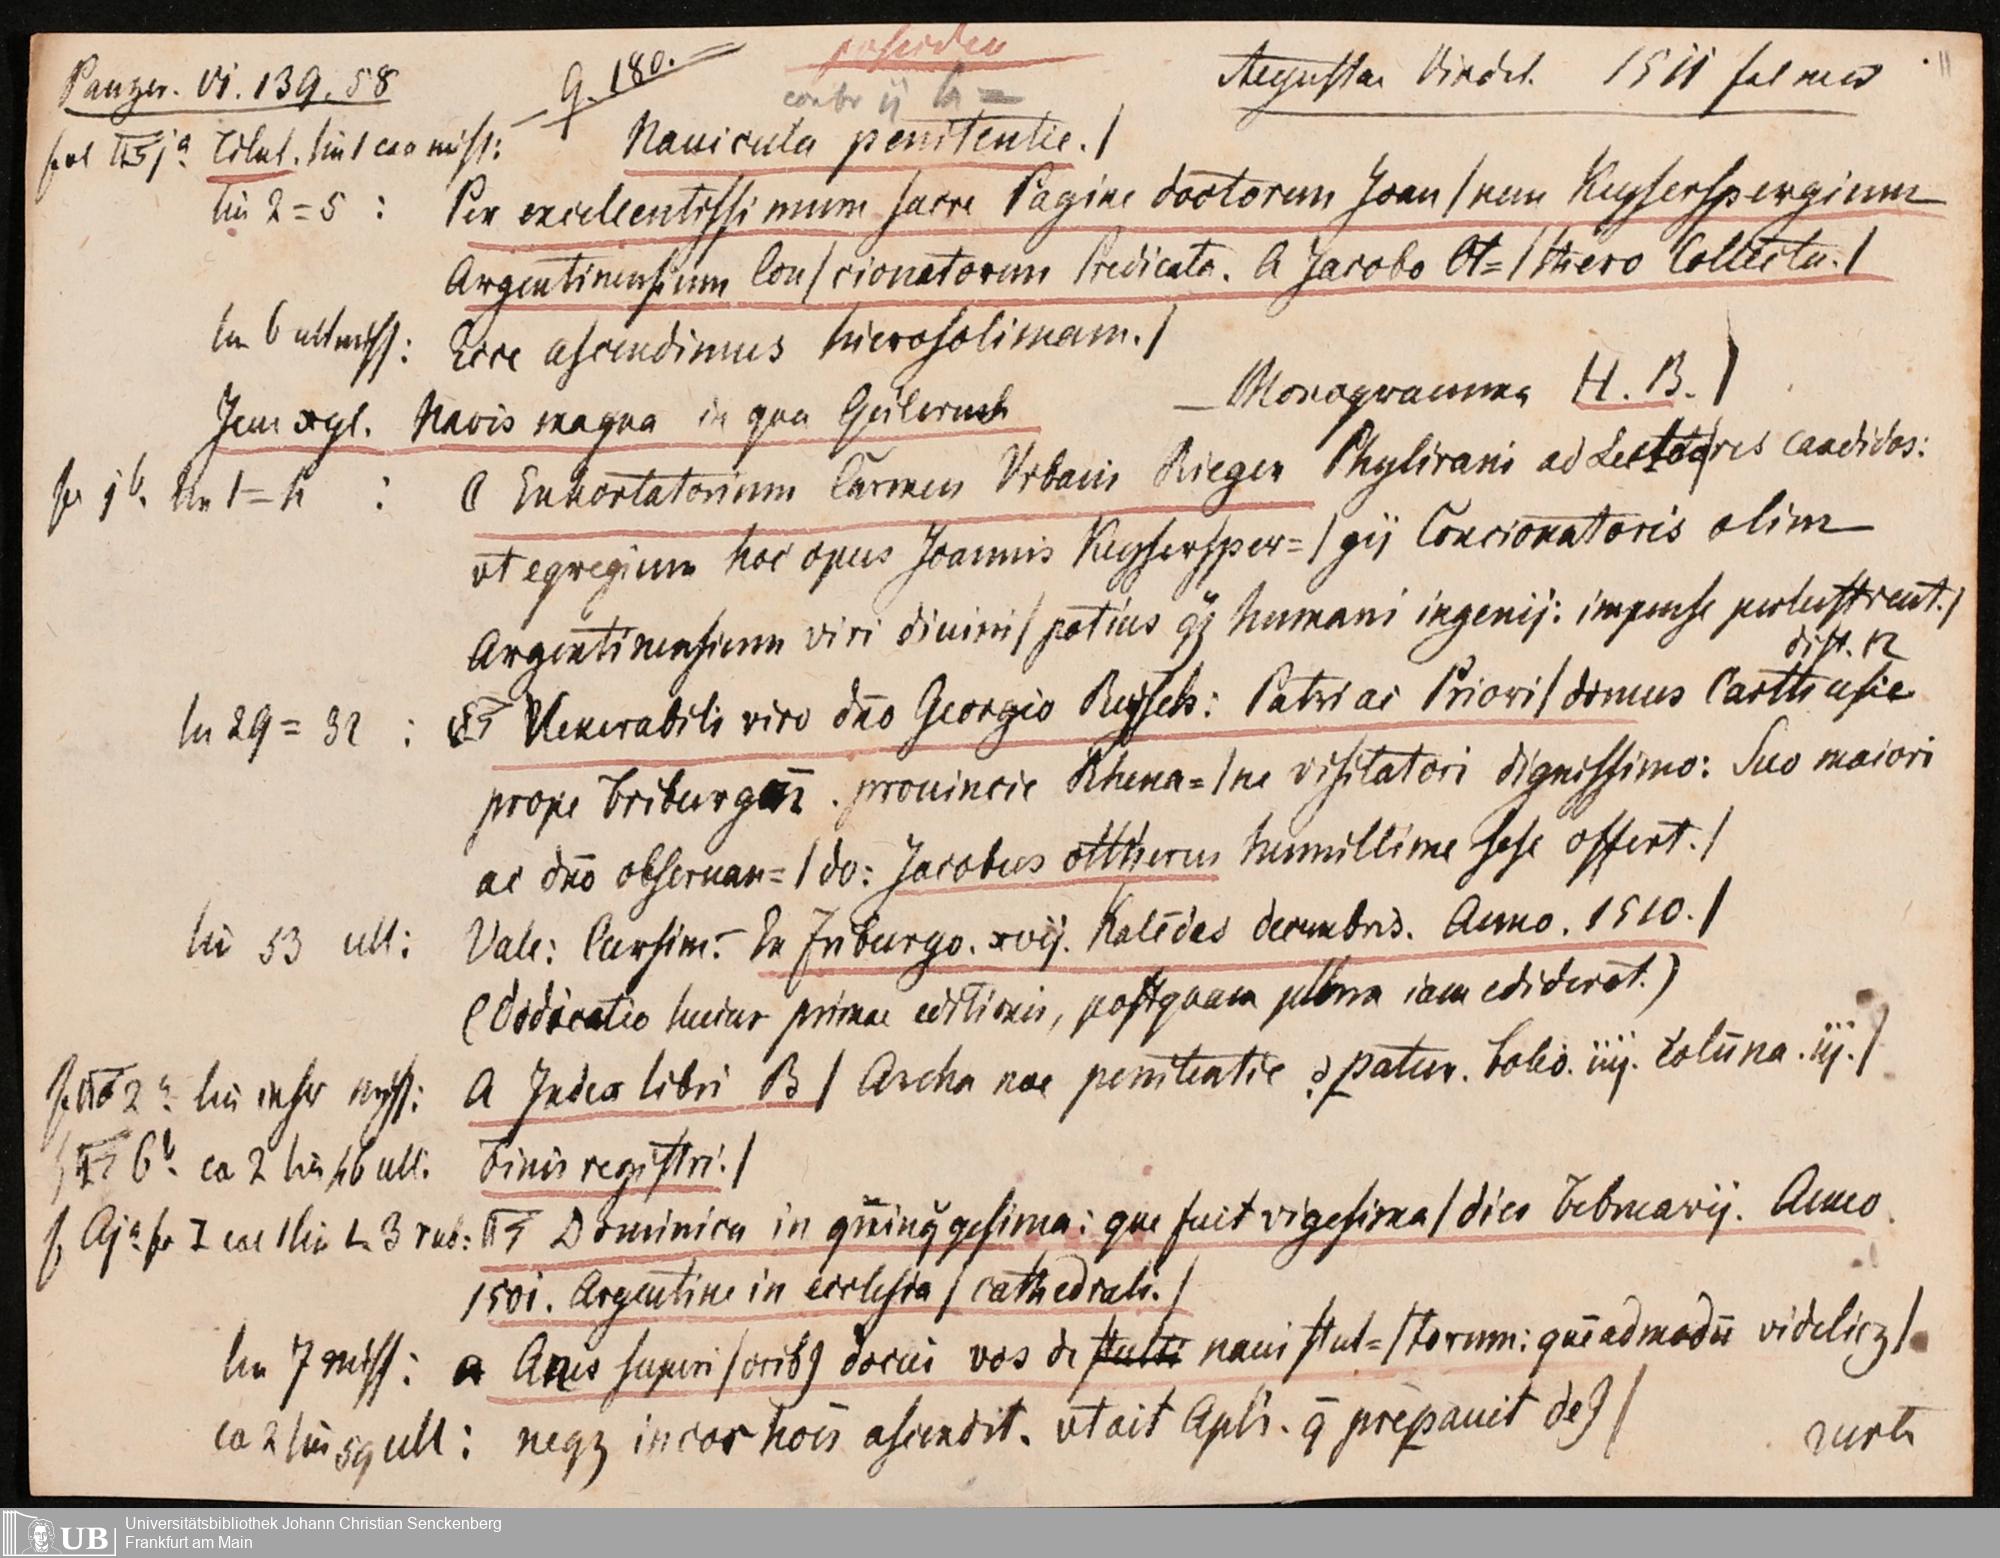 Panzer. VI. 139. 58 Q. 180. Augustae Vindel. 1511 fol
Nauicula penitentie. /
lin 2 = 5 : Per excellentissimum sacre Pagine doctorem Joan / nem Keyserspergium
Argentinensium Con / cionatorem Predicata. A Jacobo Ot= / thero Collecta. /
lin 6 ult miss: Ecce ascendimus hierosolimam. /
Navis magna in qua Monogramma H. B. /
lin 1 = : C Exhortatorium Carmen Vrbani Rieger Phylirani ad Lectores candidos:
vt egregium hoc opus Joannis Keysersper= / gij Concionatoris olim
Argentinensium viri diuini / potius qz humani ingenij: impense perlustrent. /
lin 29 = 32 : Venerabili viro dn̄o Georgio Reysch: Patri ac Priori / domus Carthusie
prope Friburgum . prouincie Rhena= / ne visitatori dignissimo: Suo maiori
ac dn̄o obseruan= / do: Jacobus ottherus humillime sese offert. /
lin 53 ult: Vale: Cursim. Ex Friburgo. xvij. Kalēdas decembris. Anno. 1510. /
(Dedicatio huius primae editionis, postquam iam ediderat.)
A Index libri B / Archa noe penitentie Folio. iiij. Colūna. iij. /
6 b. ca 2 lin 46 ult. Finis registri. /
Dominica in quinqgesima: que fuit vigesima / dies Februarij. Anno
1501. Argentine in ecclesia / cathedrali. /
lin 7 miss: superi / orib9 docui vos de naui stul= / torum: quēadmodū videlicz /
ca 2 lin 59 ult : neqz in cor hois ascendit. vt ait Apls. q̄ prepauit de9 /